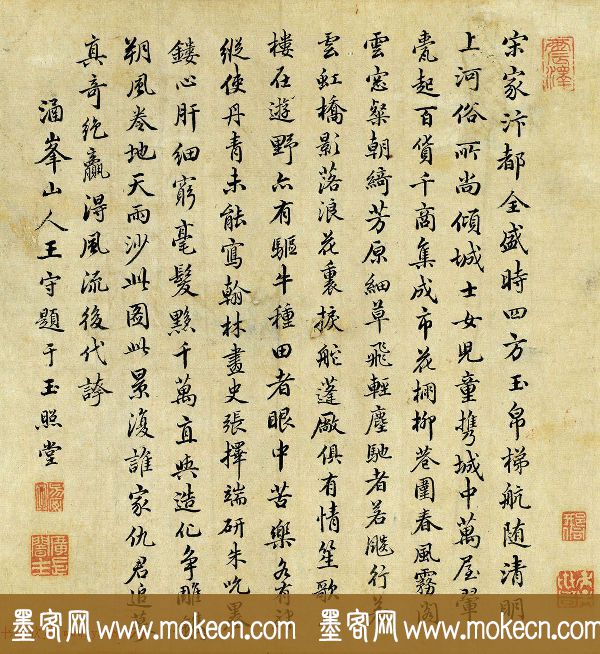 宋家汴都全盛時四方玉帛梯航随清明
上河俗所尚傾城士女兒童攜城中萬屋翬
甍起百貨千商集成市花棚柳巷圍春風霧閣
雲窓粲朝綺芳原細草飛輕塵馳者若飈行若
雲虹橋影落浪花裏捩舵蓬廠俱有情笙歌
樓在遊野亦有驅牛種田者眼中苦樂各有
縱使丹青未能寫翰林畫史張擇端研朱吮墨
鏤心肝細窮毫髮黟千萬直與造化争雕
朔風卷地天雨沙此圖此景復誰家仇君追
真奇絶贏得風流後代誇
涵峯山人王守題于玉照堂
墨客网 www.mokecn.com 墨客网 www.mokecn.com